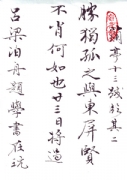 蘭亭十三跋其二
勝獨孤之與東屏賢
不肖何如也廿三日將過
呂梁泊舟題學書在沅